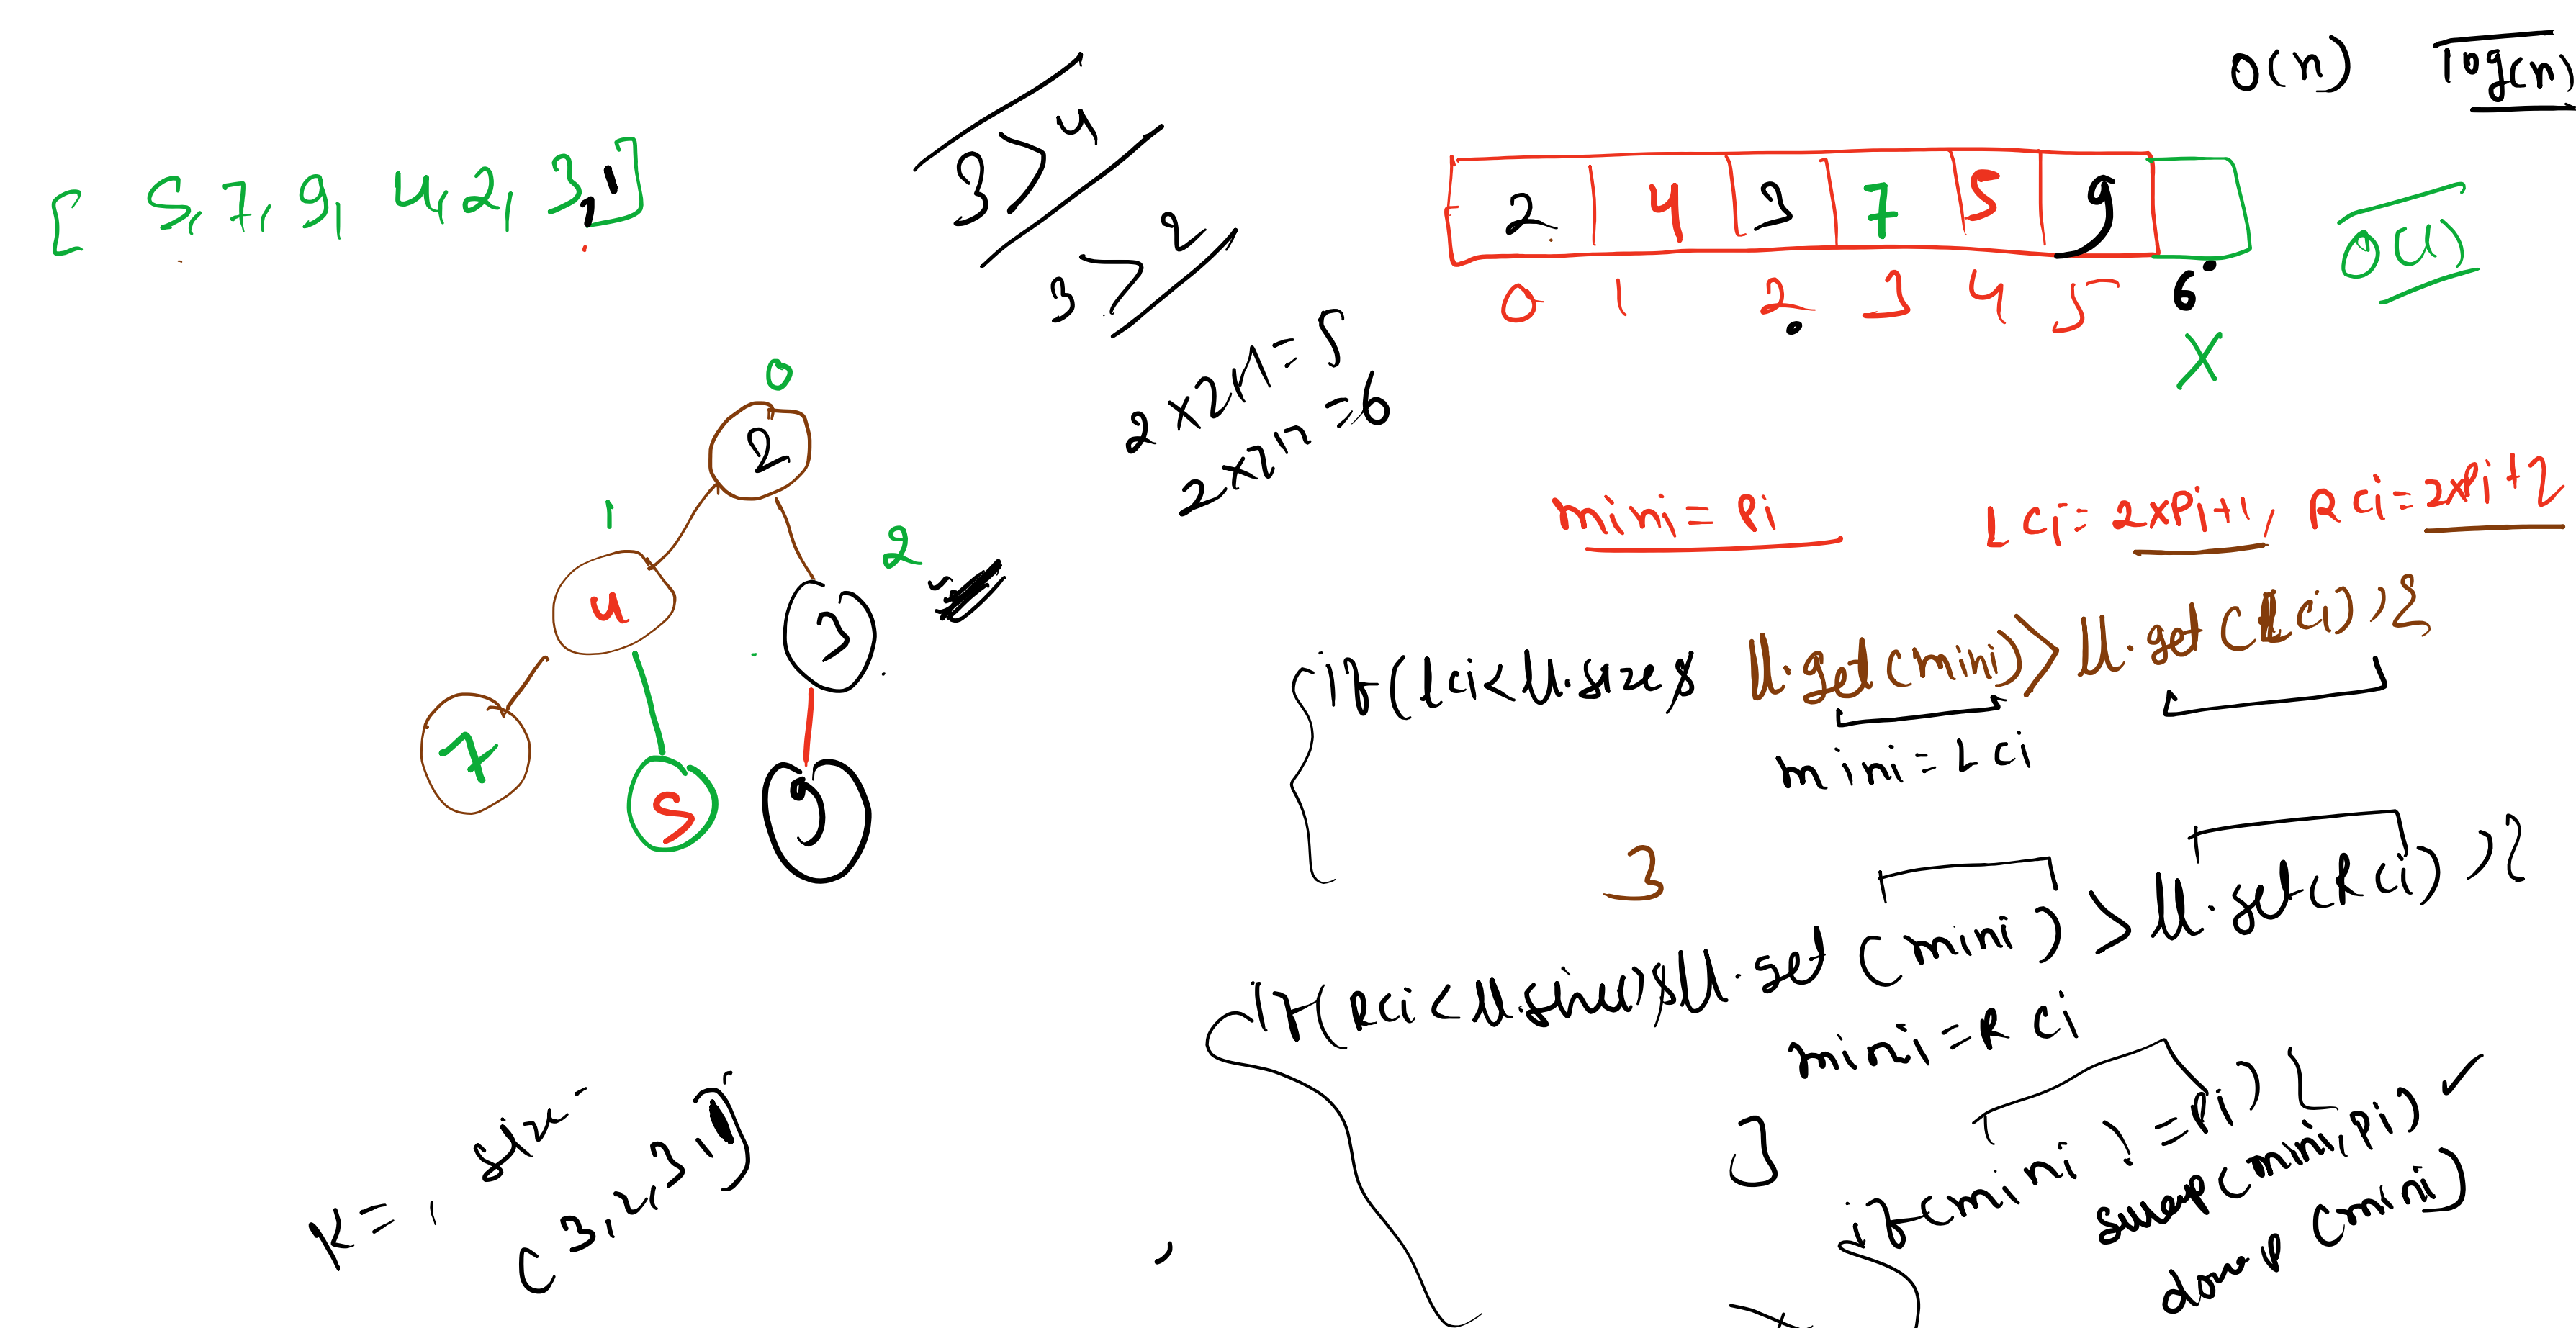 O(n) log(n)
[ 5, 7, 9, 4, 2, 3, 1]
3 > 4
3 > 2
2 4 3 7 5 9
0 1 2 3 4 5 6
X
O(1)
2 x 2 + 1 = 5
2 x 2 + 2 = 6
0
2
1
4
2
3
7
5
9
mini = Pi
Lci = 2xPi+1, Rci = 2xPi+2
if(lci<ll.size& ll.get(mini) > ll.get(Lci)){
mini = Lci
}
if(Rci<ll.size()&ll.get(mini) > ll.get(Rci)){
mini = Rci
}
if(mini != Pi){
swap(mini, Pi)
downp(mini)
K = , size
(3, 2, 3, 1]